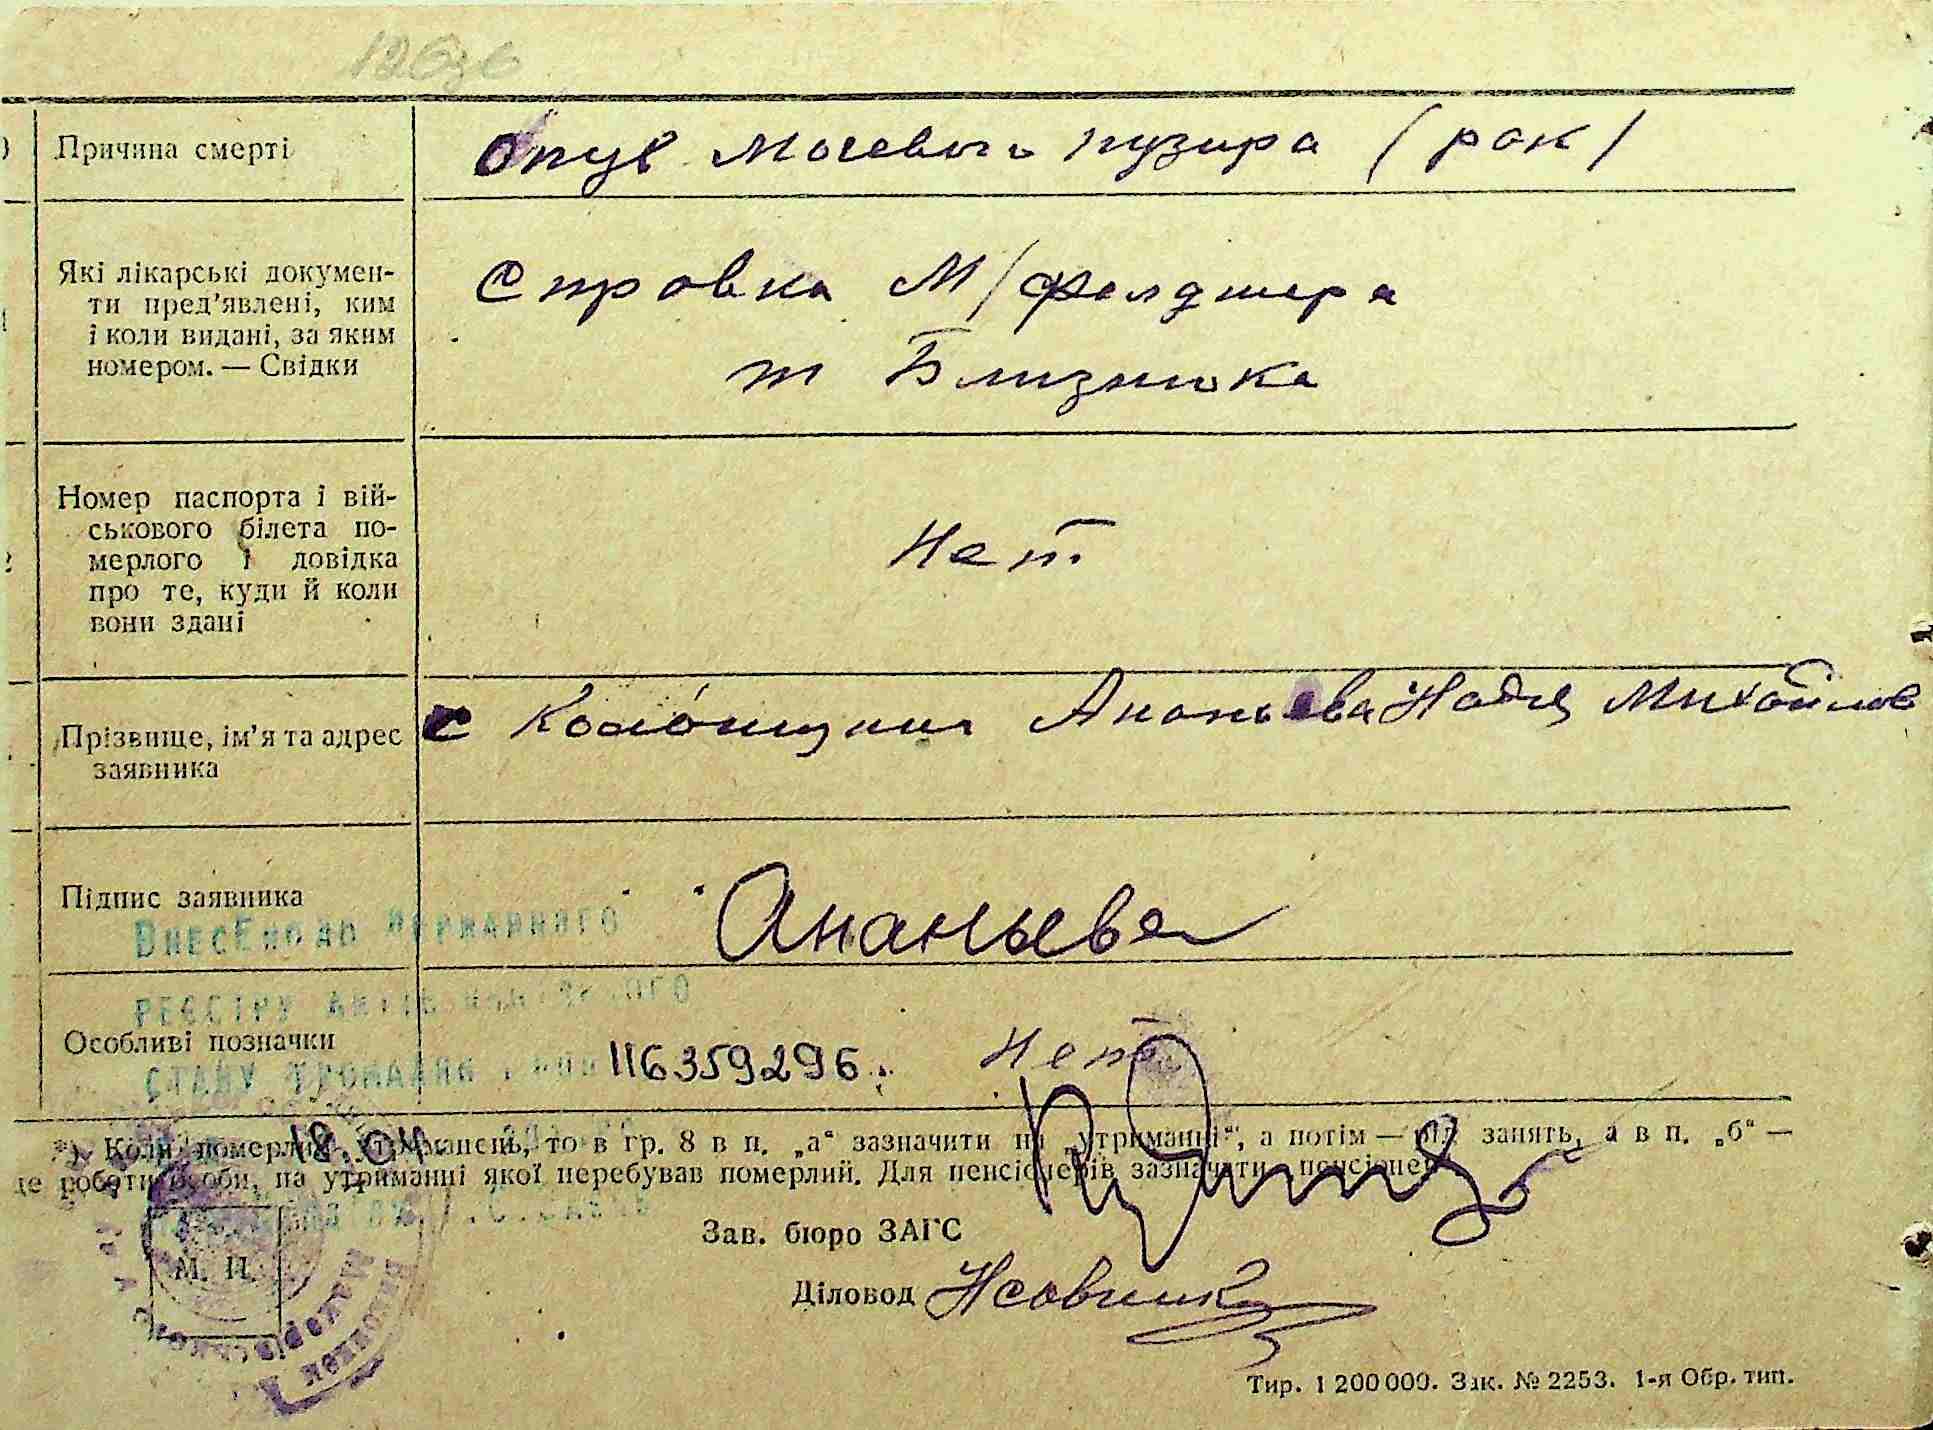 Причина смерті
опух мочевого пузира (рак)
Які лікарські докумен-
ти пред’явлені, ким
і коли видані, за яким
номером. — Свідки
Справка м/фелдшера
т Близнюка
Номер паспорта і вій-
ськового білета по-
мерлого і довідка
про те, куди й коли
вони здані
Нет
Прізвище, ім’я та адрес
заявника
с Ананьева Надя Михайлов
Підпис заявника
Ананьева
Внесено до Державного
реєстру актів цивільного
стану громадян
116359296.
Особливі позначки
Нет
18.04.
*) Коли померлий утриманець, то в гр. 8 в п. „а“ зазначити на „утриманні“, а потім — рід занять, а в п. „б“ —
де роботи особи, на утриманні якої перебував померлий. Для пенсіонерів зазначити „пенсіонер“
Зав. бюро ЗАГС
М. П.
Діловод
Тир. 1 200 000. Зак. № 2253. 1-я Обр. тип.